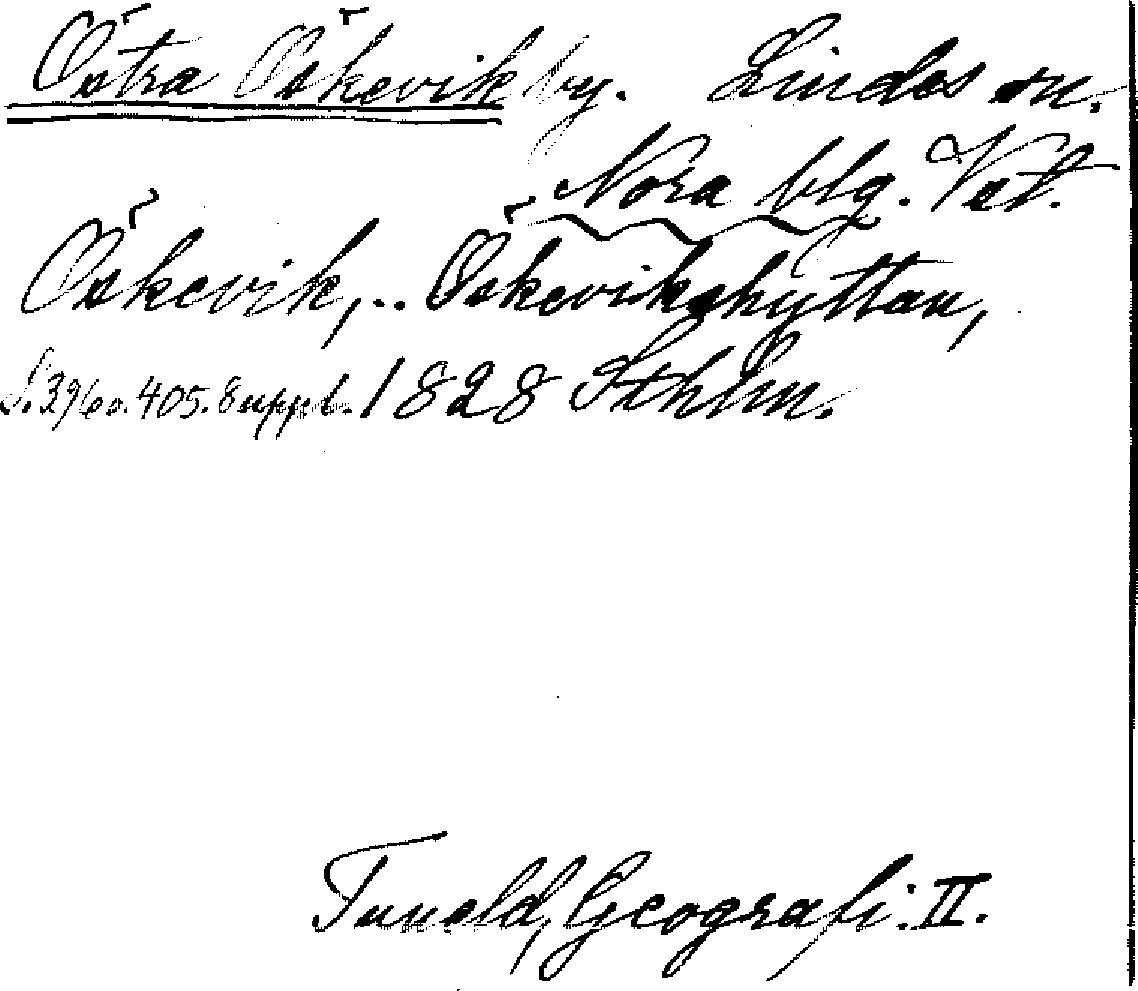 Östra Öskevik by. Lindes sn.
Nora blg. Vstl.
Öskevik, .. Öskevikshyttan,
S. 396 o. 405. 8 uppl. 1828 Sthlm.
Tuneld, Geografi. II.